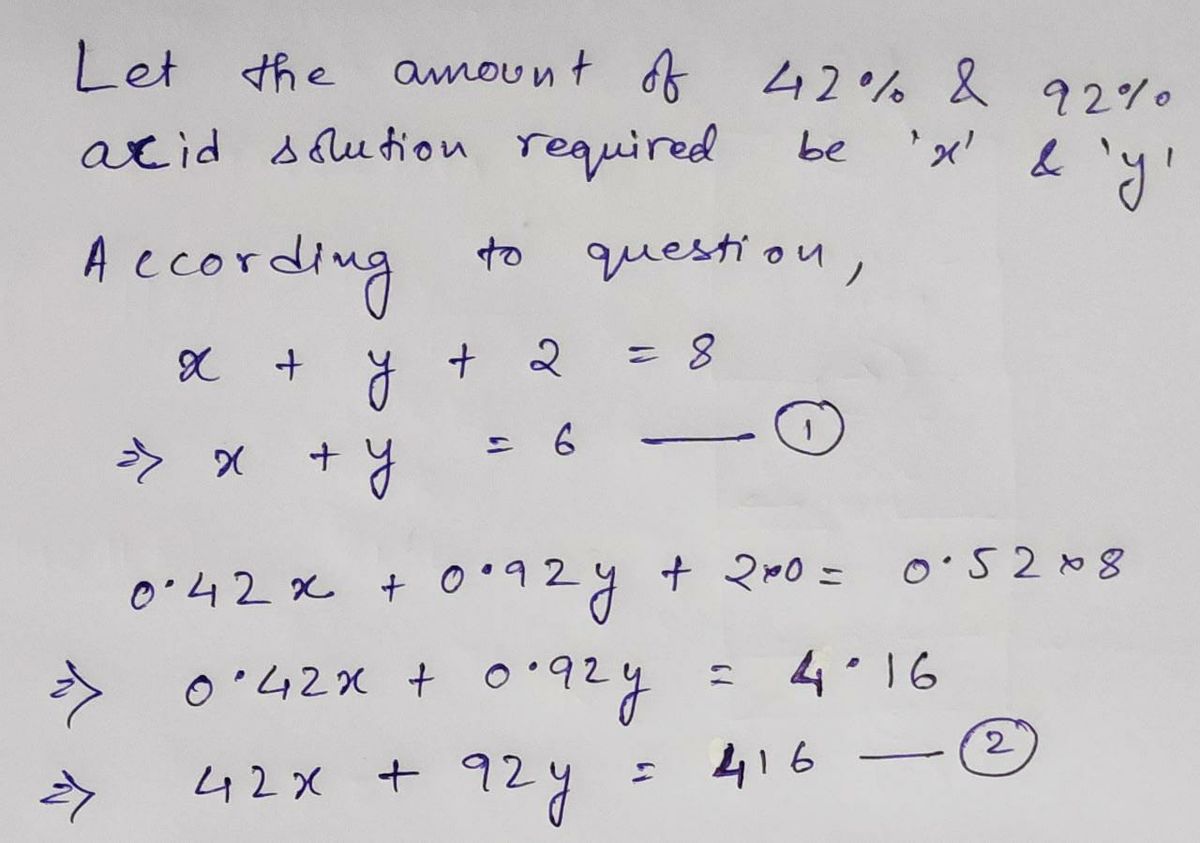 Let the amount of 42% & 92%
acid solution required be 'x' & 'y'
According to question,
x + y + 2 = 8
⇒ x + y = 6 — ①
0.42x + 0.92y + 2×0 = 0.52×8
⇒ 0.42x + 0.92y = 4.16
⇒ 42x + 92y = 416 — ②